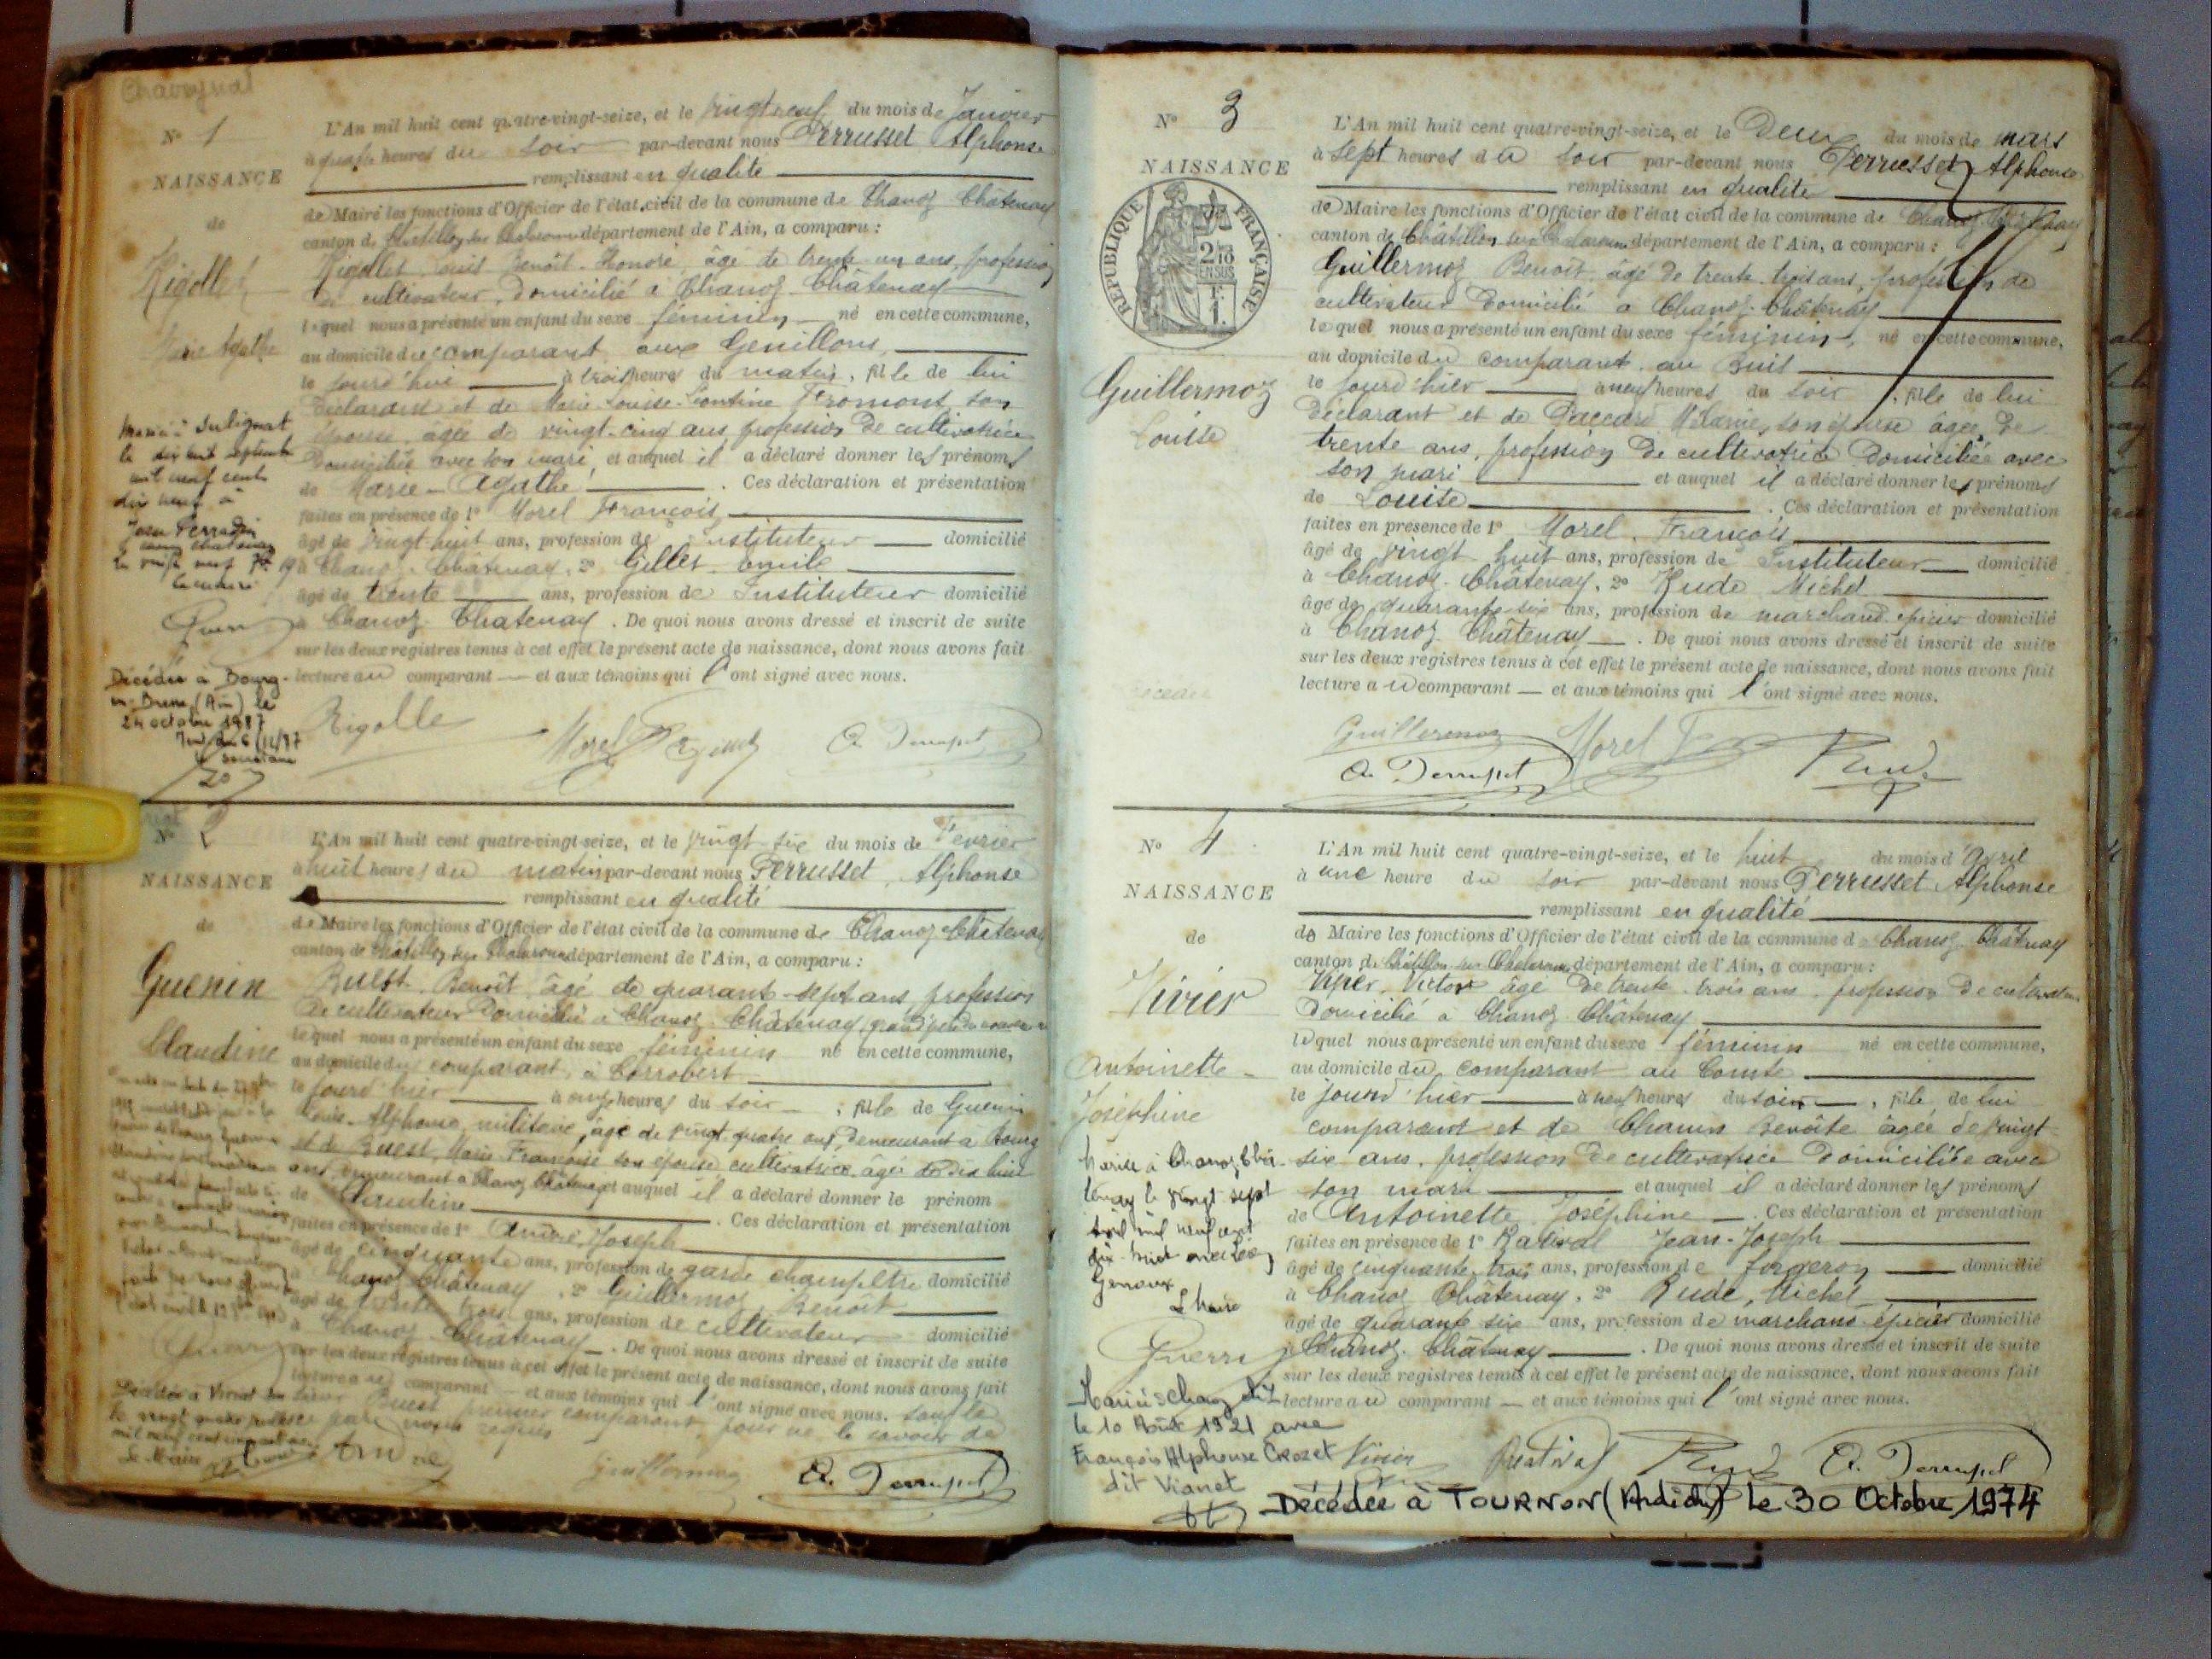 Nº 1
NAISSANCE
de
Rigollet
Marie Agathe
L'An mil huit cent quatre-vingt-seize, et le vingt neuf du mois de Janvier
à quatre heures du soir par-devant nous Perrusset Alphonse
remplissant en qualité
de Maire les fonctions d'Officier de l'état civil de la commune de Chanoz Châtenay
canton de Châtillon sur Chalaronne département de l'Ain, a comparu :
Rigollet Louis Benoît Honoré, âgé de trente un ans, profession
de cultivateur, domicilié à Chanoz-Châtenay
lequel nous a présenté un enfant du sexe féminin né en cette commune,
au domicile du comparant aux Genillons
le jourd'hui à trois heures du matin, fille de lui
Déclarant et de Marie-Louise-Léontine Fromont, son
épouse, âgée de vingt-cinq ans profession de cultivatrice
domiciliée avec son mari, et auquel il a déclaré donner les prénoms
de Marie-Agathe . Ces déclaration et présentation
faites en présence de 1º Morel François
âgé de vingt huit ans, profession de Instituteur domicilié
à Chanoz-Châtenay, 2º Gillet Emile
âgé de trente ans, profession de Instituteur domicilié
à Chanoz Châtenay . De quoi nous avons dressé et inscrit de suite
sur les deux registres tenus à cet effet le présent acte de naissance, dont nous avons fait
lecture au comparant et aux témoins qui l'ont signé avec nous.
Mariée à Sulignat
le dix huit septembre
mil neuf cent
dix neuf à
Jean Perradin
Décédée à Bourg-
en-Bresse (Ain) le
24 octobre 1987
Rigolle
Morel
Nº 2
NAISSANCE
de
Guenin
Claudine
L'An mil huit cent quatre-vingt-seize, et le vingt six du mois de Février
à huit heures du matin par-devant nous Perrusset, Alphonse
remplissant en qualité
de Maire les fonctions d'Officier de l'état civil de la commune de Chanoz-Châtenay
canton de Châtillon sur Chalaronne département de l'Ain, a comparu :
Buest Benoît âgé de quarant-sept ans profession
de cultivateur Domicilié à Chanoz Châtenay, grand père
lequel nous a présenté un enfant du sexe féminin né en cette commune,
au domicile du comparant, à Corrobert
le jourd'hier à onze heures du soir, fille de Guenin
Louis-Alphonse, militaire, âgé de vingt quatre ans, demeurant à Bourg
et de Buest, Marie Françoise son épouse cultivatrice âgée de dix huit
ans, demeurant à Chanoz Châtenay et auquel il a déclaré donner le prénom
de Claudine . Ces déclaration et présentation
faites en présence de 1º André Joseph
âgé de cinquante ans, profession de garde champêtre domicilié
à Chanoz Châtenay, 2º Guillermoz, Benoît
âgé de trente trois ans, profession de cultivateur domicilié
à Chanoz Châtenay . De quoi nous avons dressé et inscrit de suite
sur les deux registres tenus à cet effet le présent acte de naissance, dont nous avons fait
lecture au comparant et aux témoins qui l'ont signé avec nous. sauf le
sieur Buest premier comparant pour ne le savoir de
ce par nous requis
Le Maire
Guillermoz
Nº 3
NAISSANCE
REPUBLIQUE FRANÇAISE
2/10
EN SUS
Guillermoz
Louise
L'An mil huit cent quatre-vingt-seize, et le Deux du mois de mars
à sept heures du soir par-devant nous Perrusset Alphonse
remplissant en qualité
de Maire les fonctions d'Officier de l'état civil de la commune de Chanoz-Châtenay
canton de Châtillon sur Chalaronne département de l'Ain, a comparu :
Guillermoz Benoît âgé de trente-trois ans, profession de
cultivateur domicilié à Chanoz-Châtenay
lequel nous a présenté un enfant du sexe féminin, né en cette commune,
au domicile du comparant au Buis
le jourd'hier à neuf heures du soir, fille de lui
Déclarant et de Mélanie, son épouse âgée de
trente ans, profession de cultivatrice domiciliée avec
son mari et auquel il a déclaré donner les prénoms
de Louise . Ces déclaration et présentation
faites en présence de 1º Morel, François
âgé de vingt huit ans, profession de Instituteur domicilié
à Chanoz-Châtenay, 2º Rude Michel
âgé de quarante six ans, profession de marchand épicier domicilié
à Chanoz Châtenay . De quoi nous avons dressé et inscrit de suite
sur les deux registres tenus à cet effet le présent acte de naissance, dont nous avons fait
lecture au comparant et aux témoins qui l'ont signé avec nous.
Guillermoz Morel
Nº 4
NAISSANCE
de
Vivier
Antoinette
Joséphine
L'An mil huit cent quatre-vingt-seize, et le huit du mois d'Avril
à une heure du soir par-devant nous Perrusset Alphonse
remplissant en qualité
de Maire les fonctions d'Officier de l'état civil de la commune de Chanoz-Châtenay
canton de Châtillon sur Chalaronne département de l'Ain, a comparu :
Vivier, Victor âgé de trente-trois ans, profession de cultivateur
Domicilié à Chanoz Châtenay
lequel nous a présenté un enfant du sexe féminin né en cette commune,
au domicile du comparant au Comte
le jourd'hier à neuf heures du soir, fille de lui
comparant et de Chanin Benoîte âgée de vingt-
six ans, profession de cultivatrice domiciliée avec
son mari et auquel il a déclaré donner les prénoms
de Antoinette Joséphine . Ces déclaration et présentation
faites en présence de 1º Jean-Joseph
âgé de cinquante trois ans, profession de forgeron domicilié
à Chanoz Châtenay, 2º Rude, Michel
âgé de quarante six ans, profession de marchand épicier domicilié
à Chanoz-Châtenay . De quoi nous avons dressé et inscrit de suite
sur les deux registres tenus à cet effet le présent acte de naissance, dont nous avons fait
lecture au comparant et aux témoins qui l'ont signé avec nous.
Mariée à Chanoz-Châ-
tenay le vingt sept
avril mil neuf cent
dix-huit avec
Genoux
Le Maire
le 10 Août 1921 avec
François Alphonse Crozet
dit Vianet
Vivier
Décédée à TOURNON (Ardèche) le 30 Octobre 1974